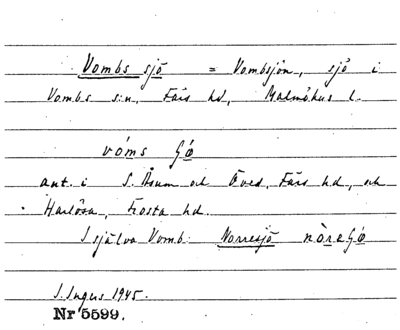 Vombs sjö = Vombsjön, sjö i
Vombs s:n, Färs hd, Malmöhus l.
vóms ʃǿ
ant. i S. Åsum och Öved, Färs hd, och
Harlösa, Frosta hd.
I själva Vomb: Norresjö nòreʃǿ
I. Ingers 1945.
Nr 5599.